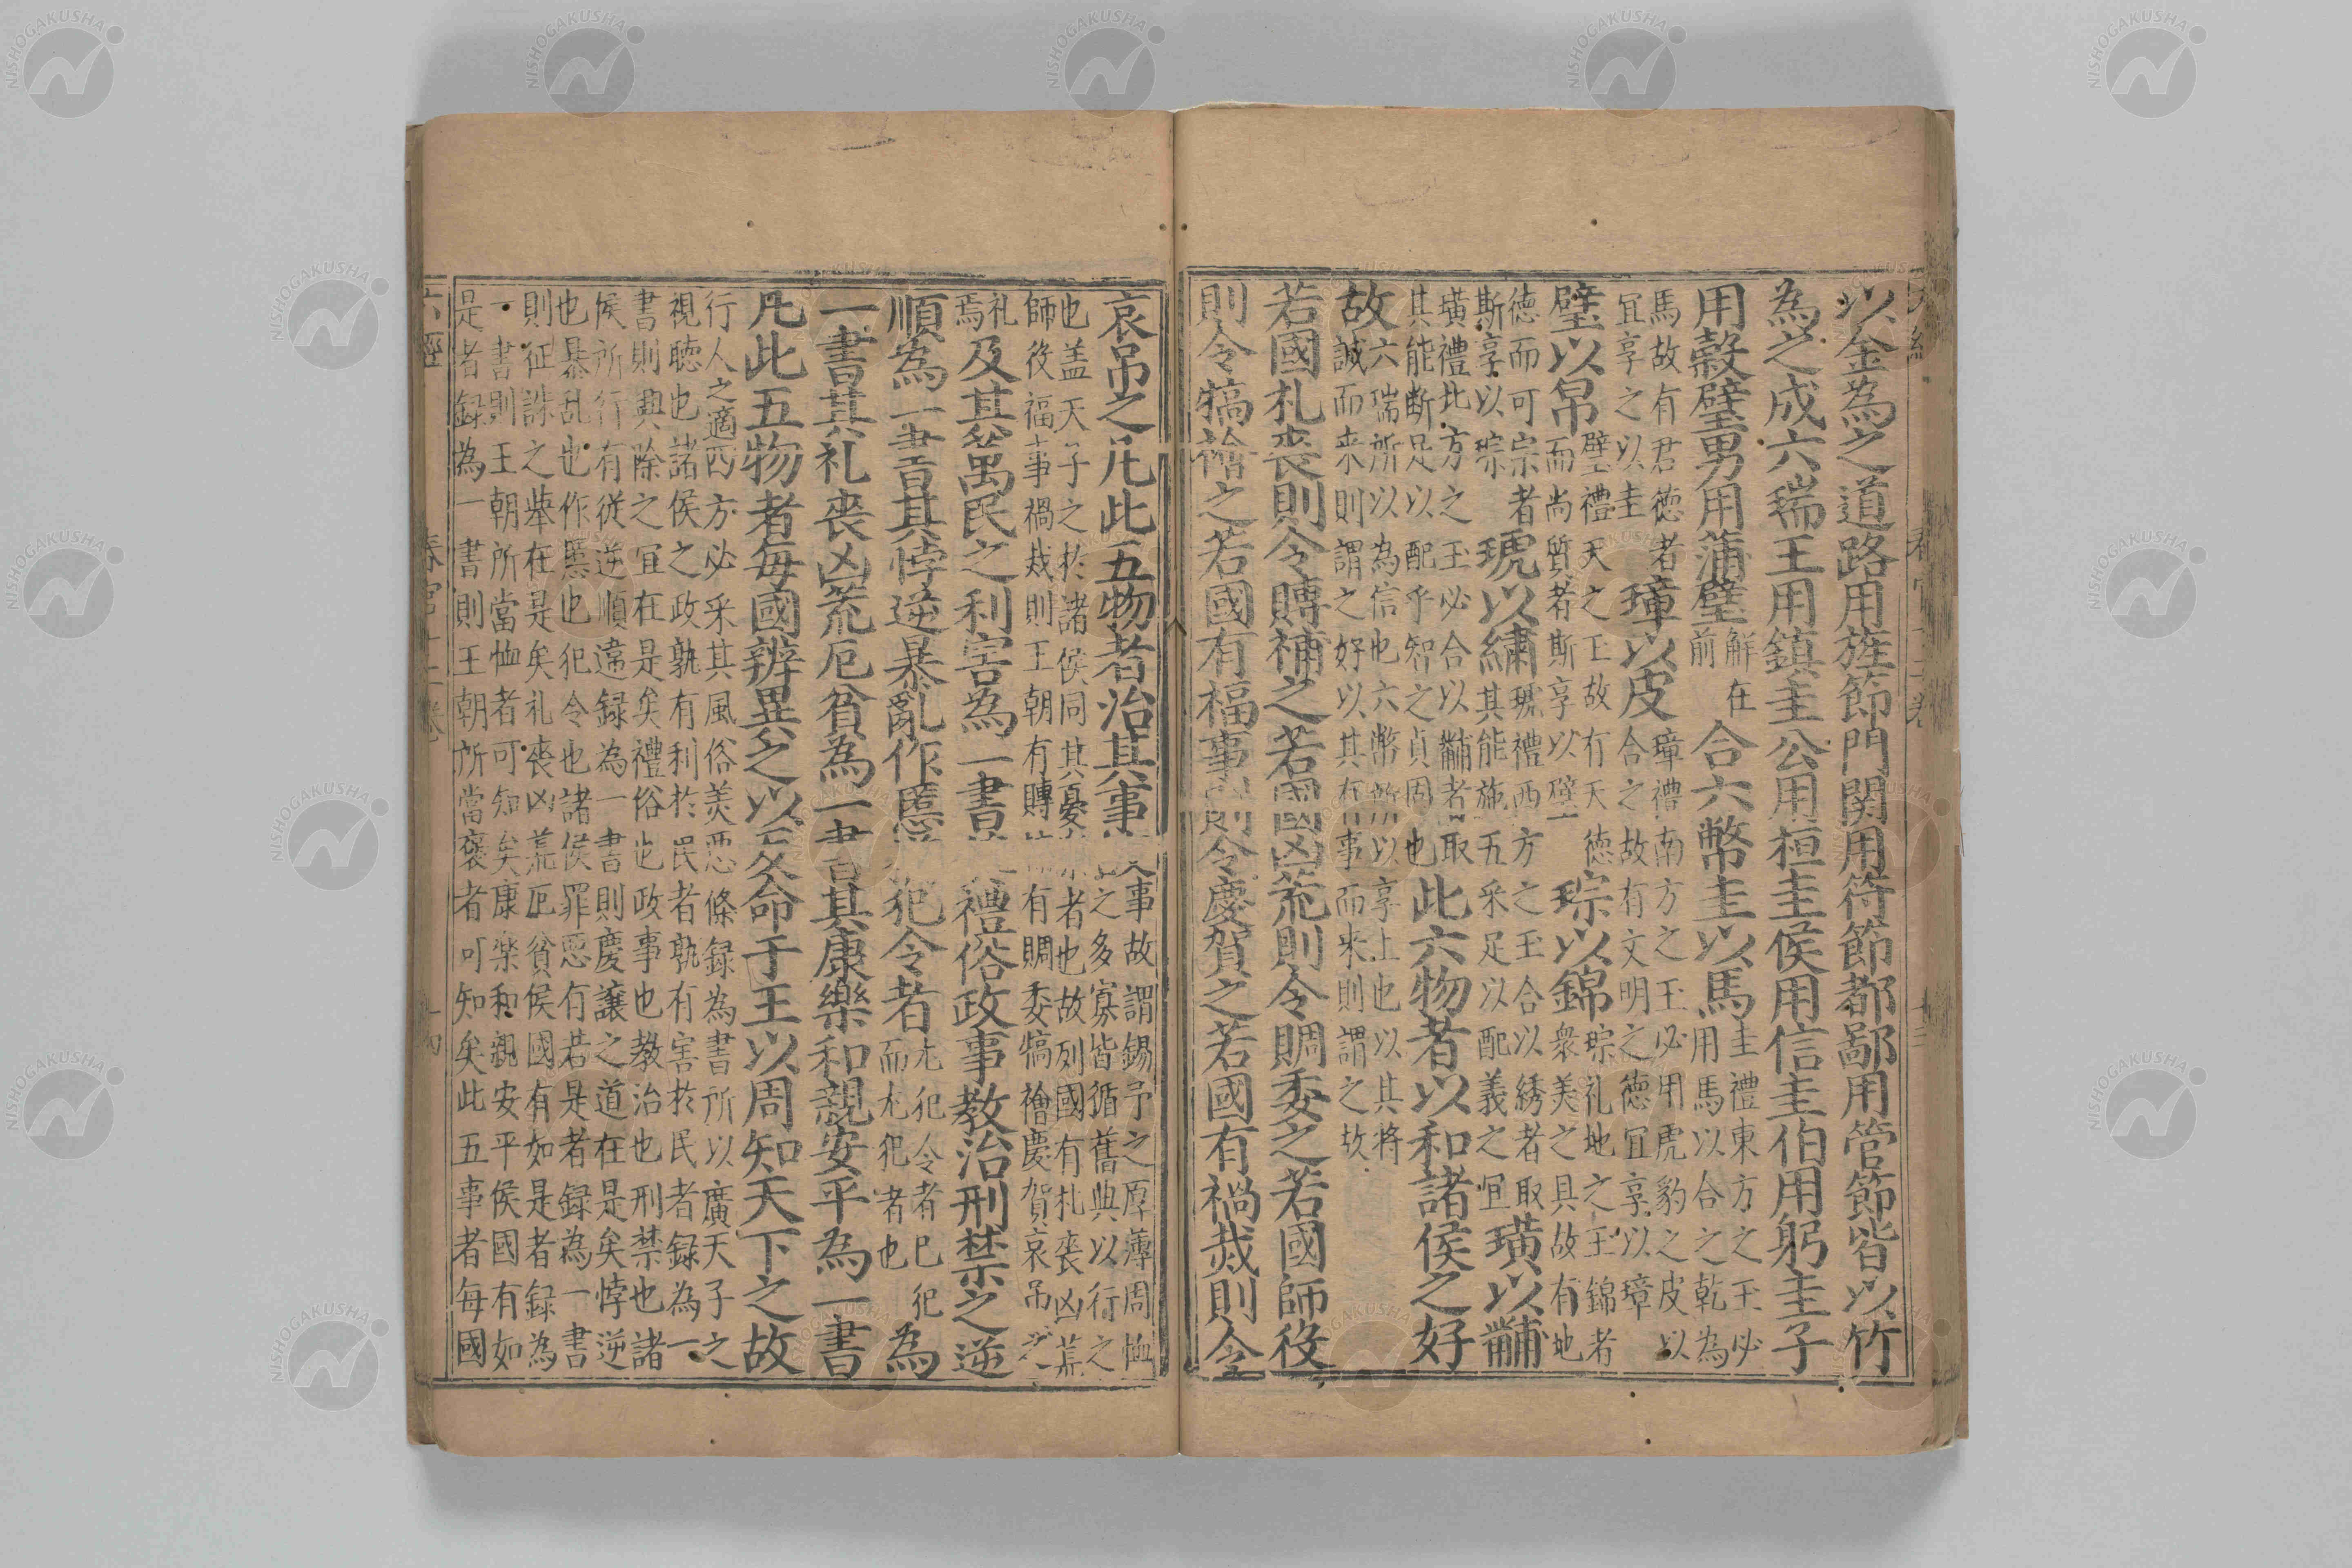 以金為之道路用旌節門関用符節都鄙用管節皆以竹
為之成六瑞王用鎮圭公用桓圭侯用信圭伯用躬圭子
用穀璧男用蒲璧解在前合六幣圭以馬圭禮東方之玉必用馬以合之乾為
馬故有君德者宜享之以圭璋以皮璋禮南方之玉必用虎豹之皮以合之故有文明之德宜享以璋
璧以帛璧禮天之玉故有天德而尚質者斯享以璧琮以錦琮礼地之玉錦者衆美之具故有地
德而可宗者斯享以琮琥以繡琥禮西方之玉合以綉者取其能施五采足以配義之宜璜以黼
璜禮北方之玉必合以黼者取其能断足以配乎智之貞固也此六物者以和諸侯之好
故六瑞所以為信也六幣所以享上也以其将誠而来則謂之好以其有事而来則謂之故
若國札喪則令賻補之若國凶荒則令賙委之若國師役
則令犒禬之若國有福事則令慶賀之若國有禍烖則令
哀吊之凡此五物者治其事故謂錫予之厚薄周恤之多寡皆循舊典以行之
也盖天子之於諸侯同其憂者也故列國有札喪凶荒師役福事禍烖則王朝有賻有賙委犒禬慶賀哀吊之
礼焉及其萬民之利害為一書禮俗政事教治刑禁之逆
順為一書其悖逆暴亂作慝犯令者尤犯令者已犯而尤犯者也為
一書其礼喪凶荒厄貧為一書其康樂和親安平為一書
凡此五物者每國辨異之以反命于王以周知天下之故
行人之適四方必采其風俗美恶條録為書所以廣天子之
視聴也諸侯之政孰有利於民者孰有害於民者録為一
書則興除之宜在是矣禮俗也政事也教治也刑禁也諸
侯所行有從逆順違録為一書則慶讓之道在是矣悖逆
也暴乱也作慝也犯令也諸侯罪恶有若是者録為一書
則征誅之舉在是矣礼喪凶荒厄貧侯國有如是者録為
一書則王朝所當恤者可知矣康楽和親安平侯國有如
是者録為一書則王朝所當褒者可知矣此五事者每國
六經
春官十二卷
NISHOGAKUSHA